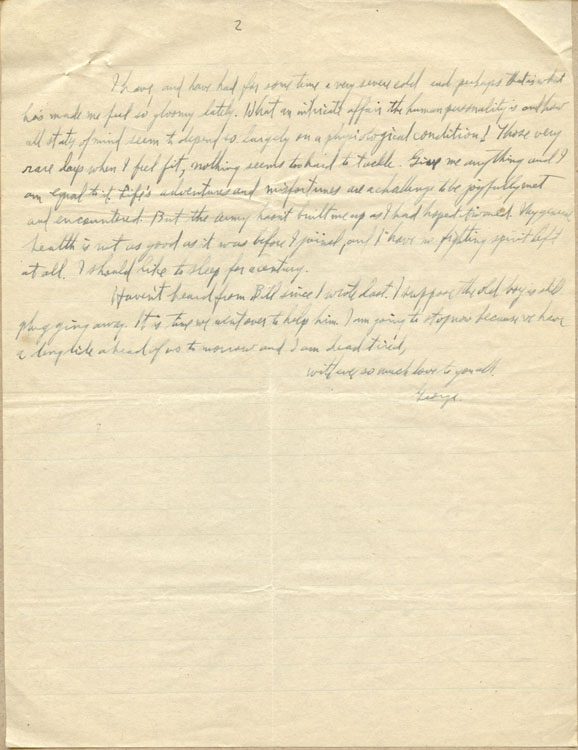 2
I have, and have had for some time a very severe cold and perhaps that is what
has made me feel so gloomy lately. What an intricate affair the human personality is and how
all states of mind seem to depend so largely on a physiological condition! Those very
rare days when I feel fit, nothing seems too hard to tackle. Give me anything and I
am equal to it. Life's adventures and misfortunes are a challenge to be joyfully met
and encountered. But the army hasn't built me up as I had hoped it would. My general
health is not as good as it was before I joined and I have no fighting spirit left
at all. I should like to sleep for a century.
Haven't heard from Bill since I wrote last. I suppose the old boy is still
plugging away. It is time we went over to help him. I am going to stop now because we have
a long hike ahead of us to morrow and I am dead tired,
with ever so much love to you all.
George.